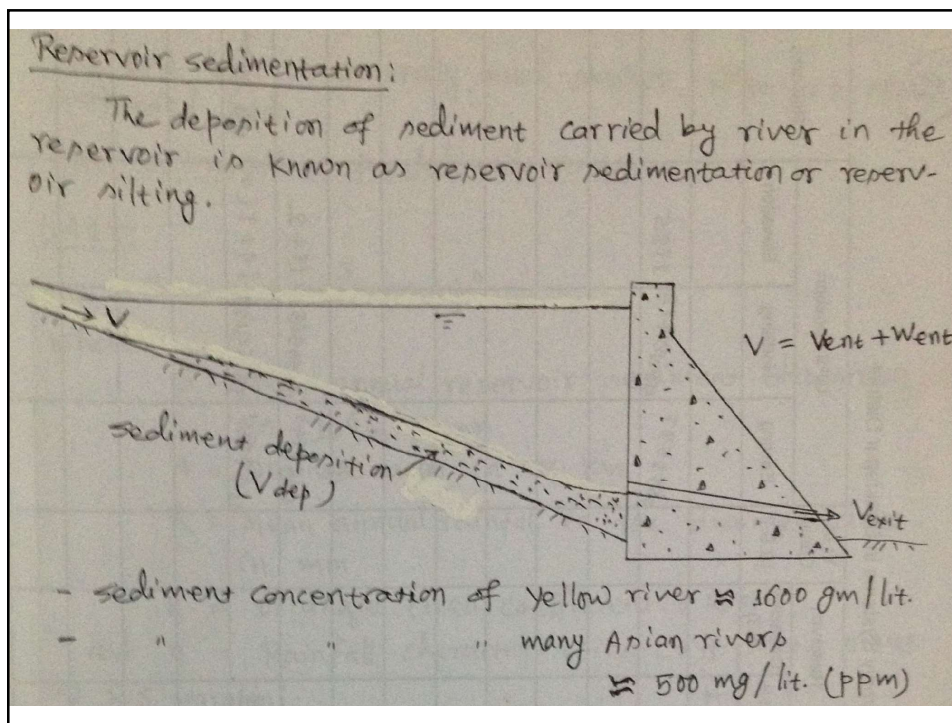 Reservoir sedimentation:
The deposition of sediment carried by river in the
reservoir is known as reservoir sedimentation or reserv-
oir silting.
V
V = Vent + Went
sediment deposition
(Vdep)
Vexit
- sediment concentration of Yellow river ≈ 1600 gm/lit.
- " " " many Asian rivers
≈ 500 mg/lit. (ppm)